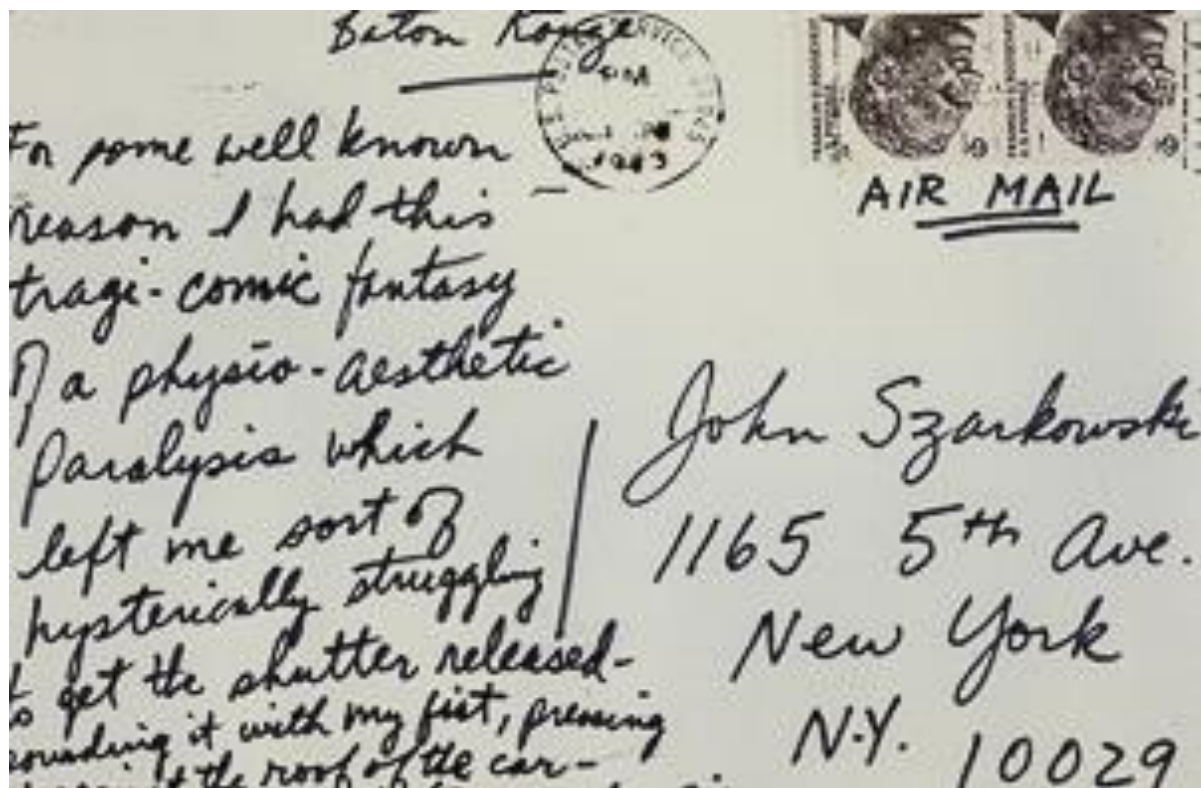 Baton Rouge
For some well known
reason I had this
tragi-comic fantasy
of a physio-aesthetic
Paralysis which
left me sort of
hysterically struggling
to get the shutter released-
pounding it with my fist, pressing
the roof of the car-
AIR MAIL
John Szarkowski
1165 5th Ave.
New York
N.Y. 10029